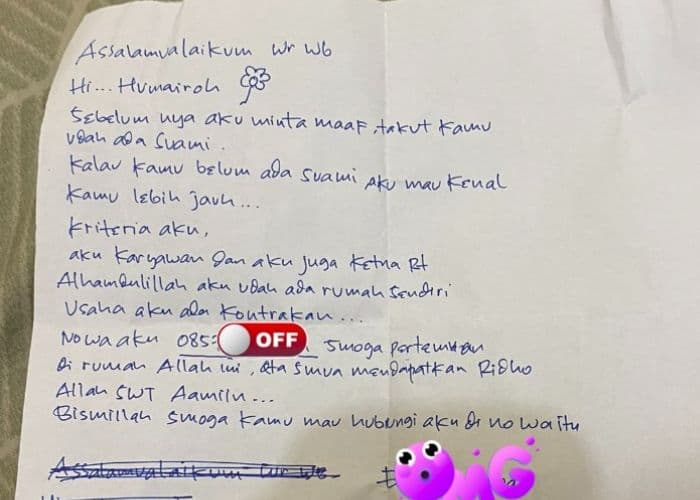 Assalamualaikum wr wb
Hi... Humairoh
Sebelum nya aku minta maaf, takut kamu
udah ada Suami.
Kalau kamu belum ada suami aku mau kenal
kamu lebih jauh...
kriteria aku,
aku karyawan dan aku juga ketua Rt
Alhamdulillah aku udah ada rumah sendiri
Usaha aku ada kontrakan...
No wa aku 085 OFF Smoga pertemuan
di rumah Allah ini, kita smua mendapatkan Ridho
Allah SWT Aamiin...
Bismillah smoga kamu mau hubungi aku di no wa itu
Assalamualaikum wr wb
OMG